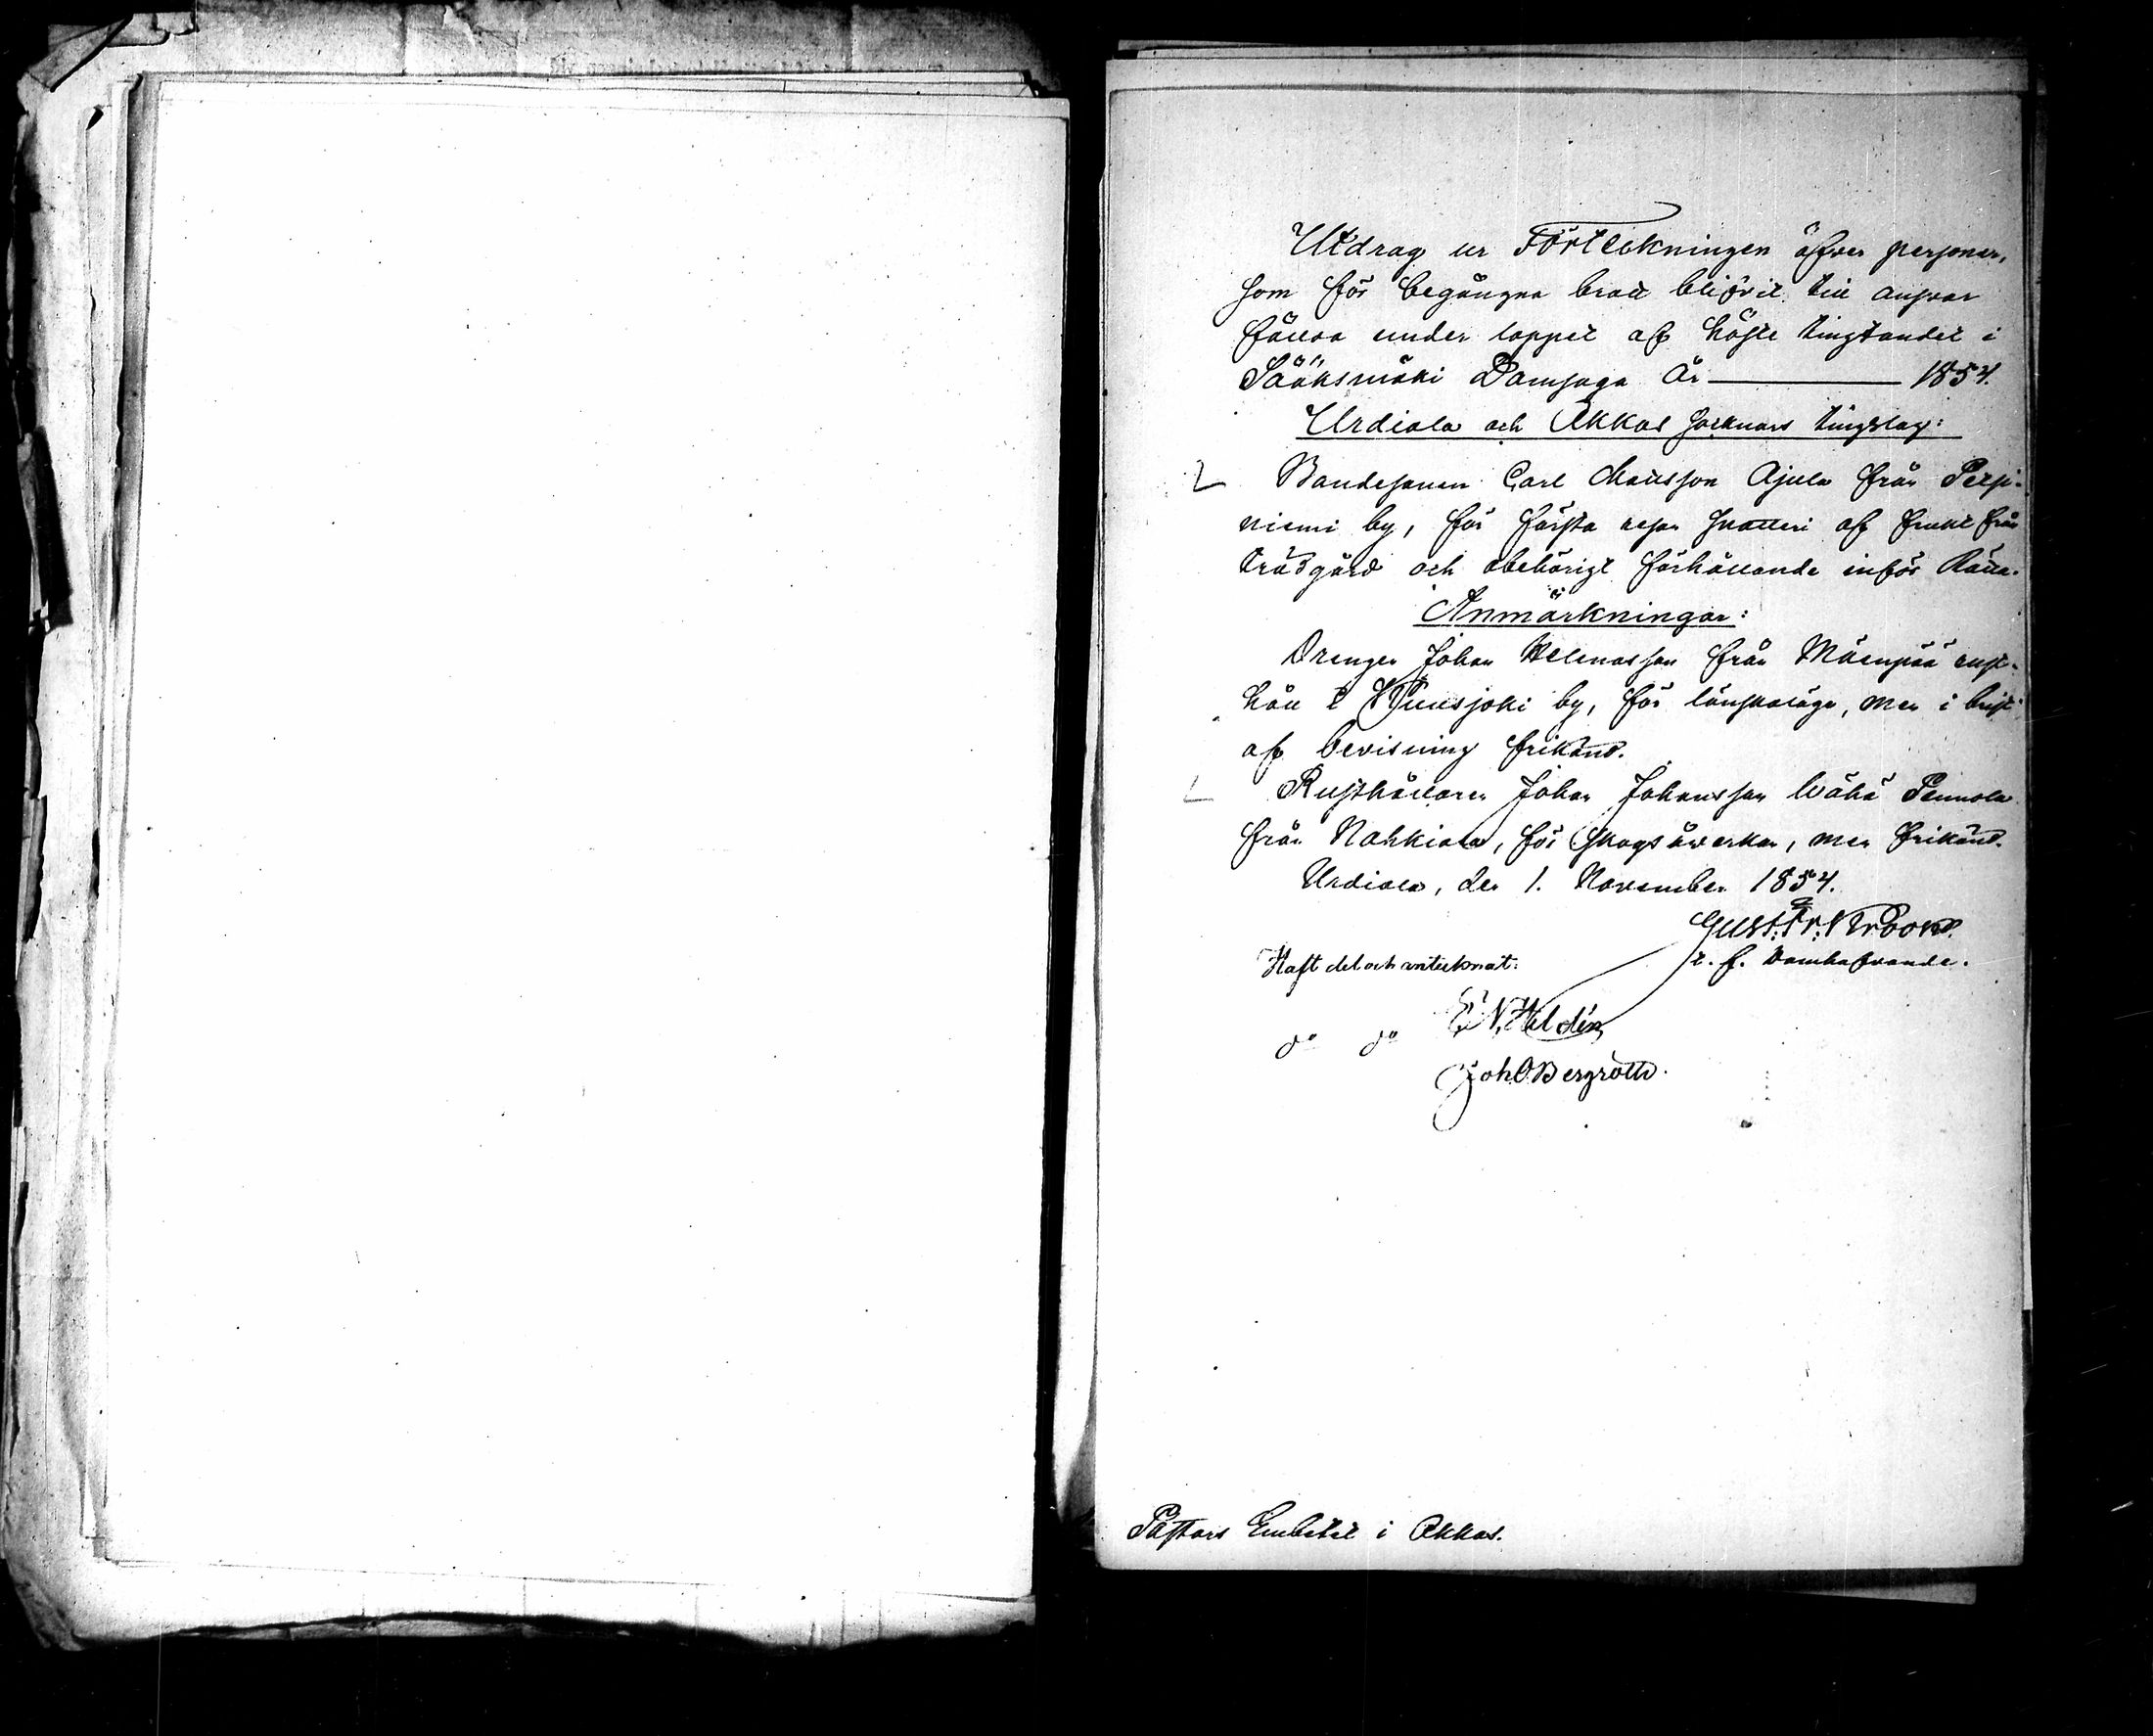 Utdrag ur Förteckningen öfver personer,
som för begångna brott blifvit till answar
fällda under loppet af höste tingtandet i
Sääksmäki Domsaga År ——— 1854.
Urdiala och Akkas Socknars tingslag:
Bondesonen Carl Mattsson Ajula från
niemi by, för första resan snatteri af frukt från
trädgård och obehörigt förhållande inför Rätta.
Anmärkningar:
Drengen Johan Helenasson från Mäenpää rust-
håll i Nuusjoki by, för lönskaläge, men i brist
af bevisning frikänd.
Rusthållaren Johan Johansson Wähä Pennola
från Nahkiala, för skogsåwerkan, men frikänd.
Urdiala, den 1. November 1854.
Gust: Fr:
t. f. Domhafvande.
Haft del och antecknat:
do do E. N. Heldén
Joh O Bergroth.
Pastors Embetet i Akkas.